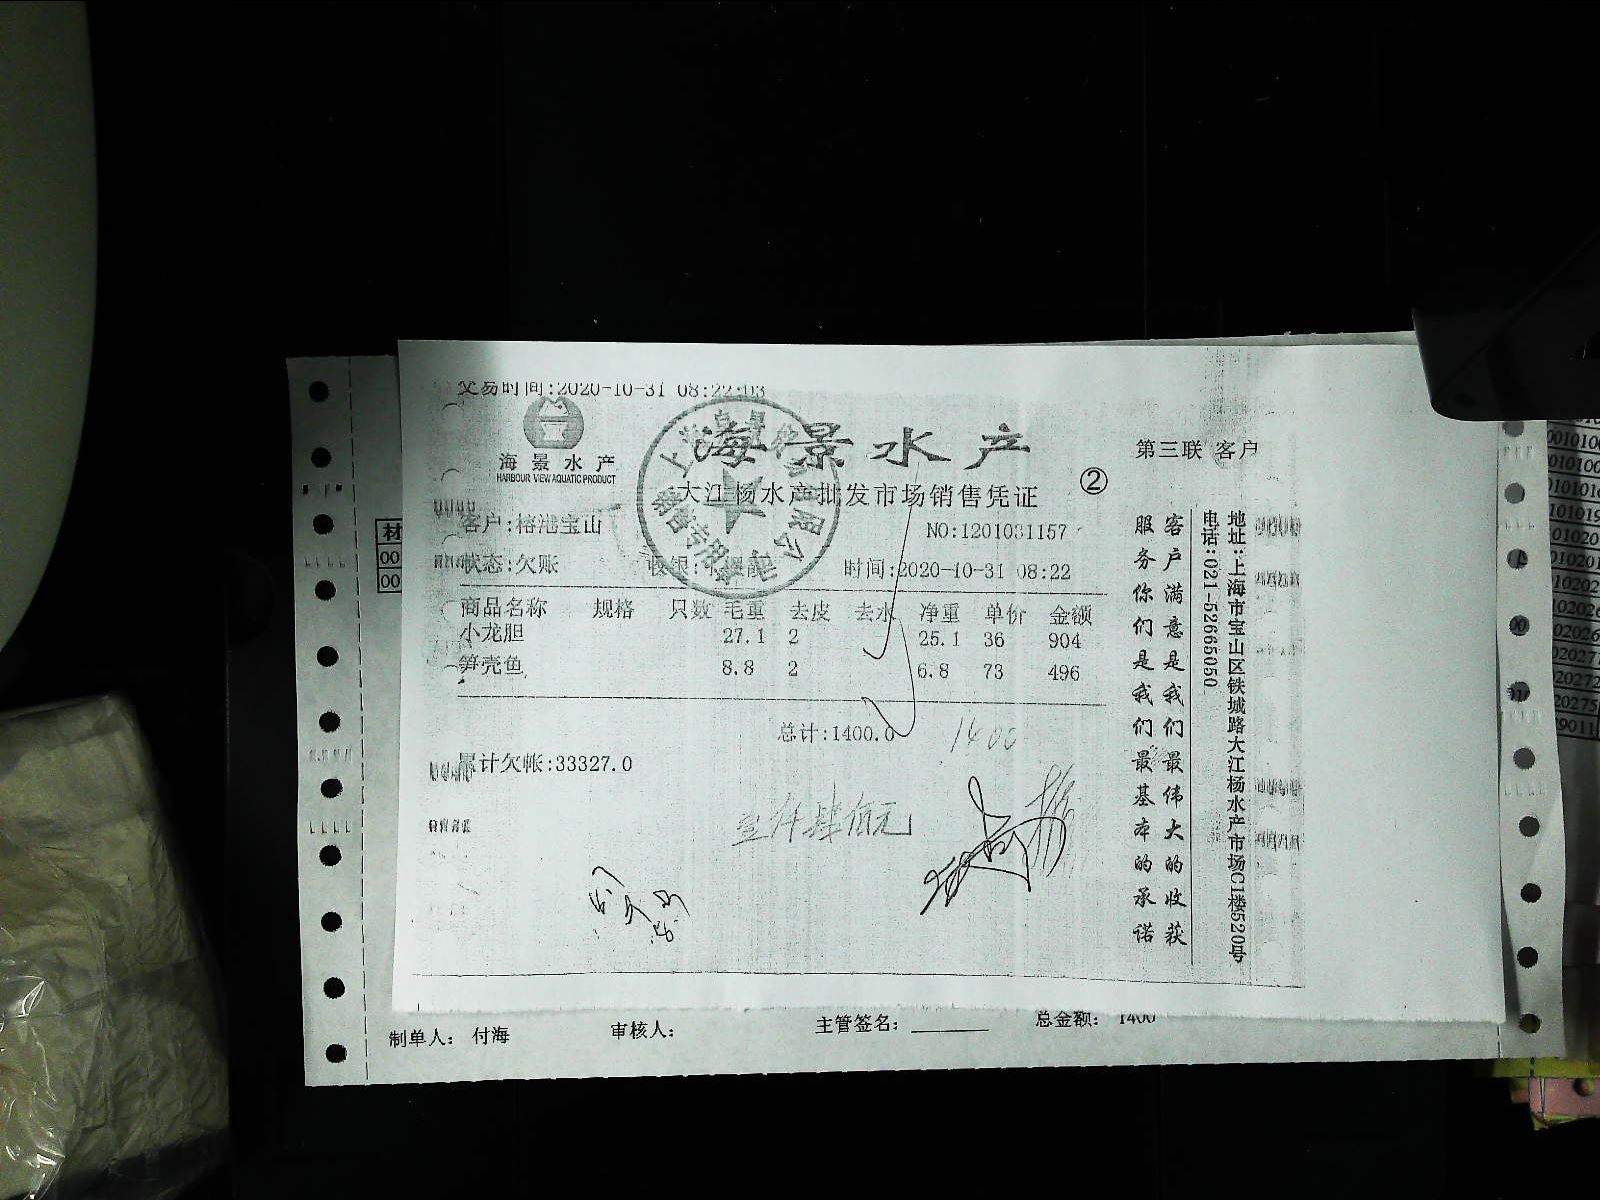 交易时间:2020-10-31 08:22:03
海景水产
HARBOUR VIEW AQUATIC PRODUCT
海景水产
第三联 客户
大江杨水产批发市场销售凭证
②
客户:榕港宝山
NO:1201031157
状态:欠账
收银:
时间:2020-10-31 08:22
商品名称 规格 只数 毛重 去皮 去水 净重 单价 金额
小龙胆 27.1 2 25.1 36 904
笋壳鱼 8.8 2 6.8 73 496
总计:1400.0
1400
累计欠帐:33327.0
壹仟肆佰元
客户满意是我们最伟大的收获
服务你们是我们最基本的承诺
地址:上海市宝山区铁城路大江杨水产市场C1楼520号
电话:021-52665050
销售专用章
材
00
00
制单人: 付海
审核人:
主管签名:
总金额: 1400